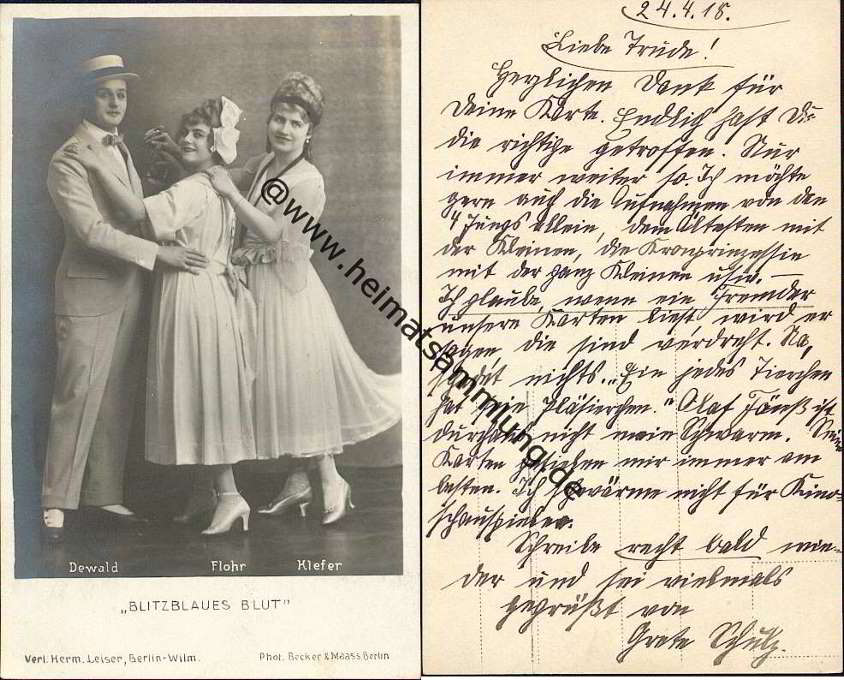 Dewald Flohr Kiefer
„BLITZBLAUES BLUT"
Verl. Herm. Leiser, Berlin-Wilm. Phot. Becker & Maass Berlin
@www.heimatsammlung.de
24.4.18.
Liebe Trude!
Herzlichen Dank für
Deine Karte. Endlich hast Du
die richtige getroffen. Nur
immer weiter so. Ich möchte
gern auch die Aufnahmen von den
4 Jungs allein, dem Ältesten mit
der Kleinen, die Kronprinzessin
mit der ganz Kleinen usw. —
Ich glaube, wenn ein Fremder
unsere Karten liest, wird er
sagen, die sind verdreht. Na,
schadet nichts. „Ein jedes Tierchen
hat sein Pläsierchen." Olaf Fönß ist
durchaus nicht mein Schwarm. Seine
Karten gefielen mir immer am
besten. Ich schwärme nicht für Kino-
schauspieler.
Schreibe recht bald wie-
der und sei vielmals
gegrüßt von
Grete Schulz.